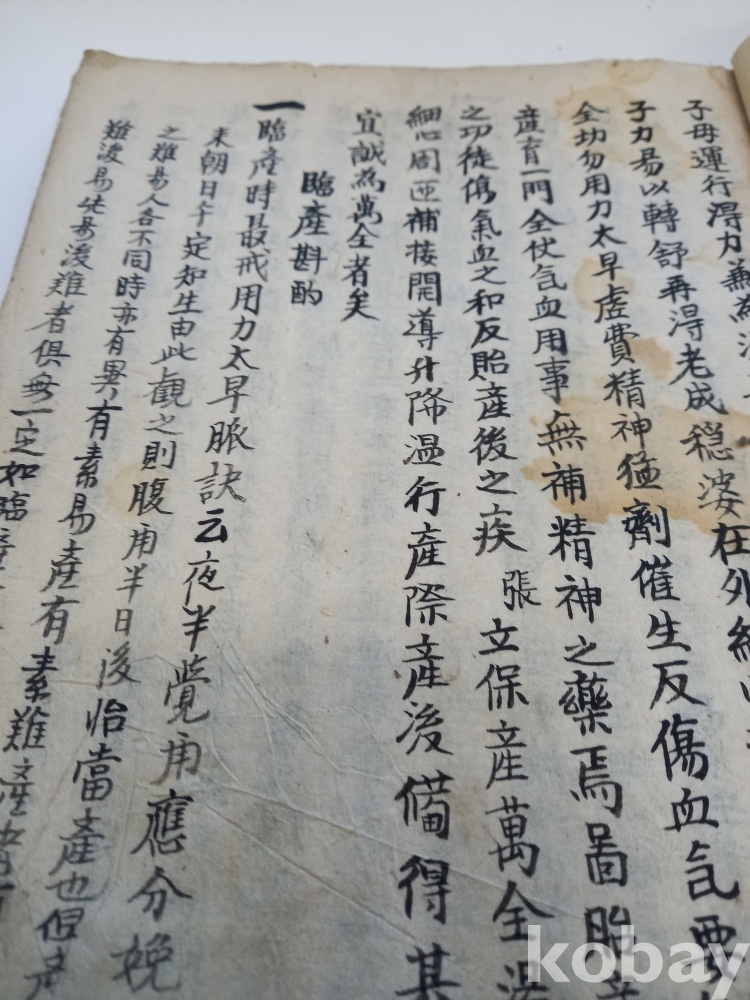 子母運行得力兼為
子力易以轉舒再得老成穩婆在外
全功勿用力太早虛費精神猛劑催生反傷血氣要
產育一門全伏气血用事無補精神之藥焉啚胎
之功徒傷氣血之和反貽產後之疾張立保產萬全
細心周匝補接開導升降温行產際產後備得其
宜誠為萬全者矣
臨產斟酌
一臨產時最戒用力太早脈訣云夜半覺用應分娩
來朝日午定知生由此觀之則腹用半日後怡當產也但產
之難易人各不同時亦有異有素易產有素難產
難後易先易後難者俱無一定如臨產
kobay